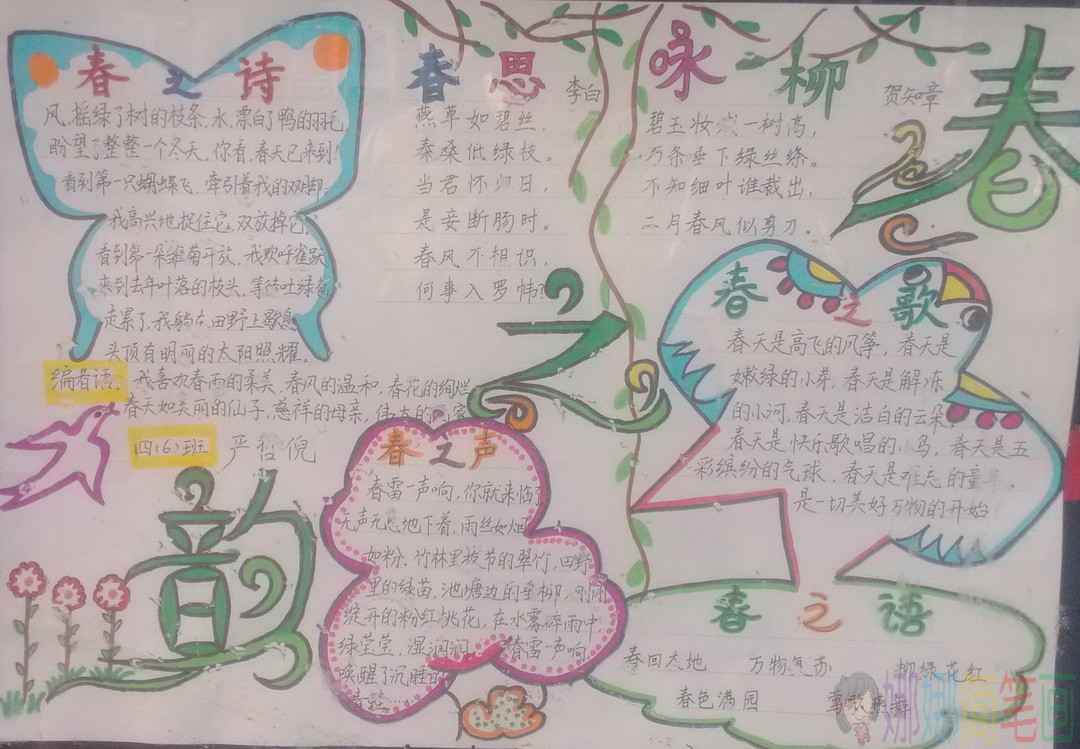 春之诗
风,摇绿了树的枝条,水,漂白了鸭的羽毛,
盼望了整整一个冬天,你看,春天已来到!
看到第一只蝴蝶飞,牵引着我的双脚;
我高兴地捉住它,又放掉它;
看到第一朵雏菊开放,我欢呼雀跃
来到去年叶落的枝头,等待吐绿
走累了,我躺在田野上歇息
头顶有明丽的太阳照耀。
编者语:我喜欢春雨的柔美,春风的温和,春花的绚烂
春天如美丽的仙子,慈祥的母亲,伟大的 家
四(6)班 严哲倪
春思
李白
燕草如碧丝,
秦桑低绿枝。
当君怀归日,
是妾断肠时。
春风不相识,
何事入罗帏?
咏柳
贺知章
碧玉妆 一树高,
万条垂下绿丝绦。
不知细叶谁裁出,
二月春风似剪刀。
春之韵
春之歌
春天是高飞的风筝,春天是
嫩绿的小芽,春天是解冻
的小河,春天是洁白的云朵,
春天是快乐歌唱的小鸟,春天是五
彩缤纷的气球,春天是难忘的童年,
是一切美好万物的开始!
春之声
春雷一声响,你就来临了
无声无息地下着,雨丝如烟
如粉。竹林里拔节的翠竹,田野
里的绿苗,池塘边的垂柳,刚刚
绽开的粉红桃花,在水雾碎雨中
绿莹莹,湿润润 春雷一声响
唤醒了沉睡的
春之语
春回大地 万物复苏 柳绿花红
春色满园 莺歌燕舞
娜娜简笔画